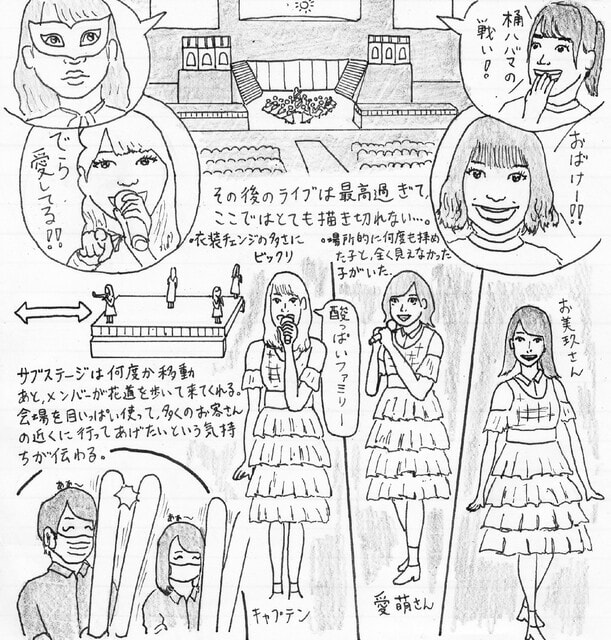 桶ハバマの
戦い!
でら
愛してる!!
おばけー!!
その後のライブは最高過ぎて、
ここではとても描き切れない…。
•衣装チェンジの多さに
ビックリ
•場所的に何度も拝め
た子と、全く見えなかった
子がいた。
サブステージは何度か移動
あと、メンバーが花道を歩いて来てくれる。
会場を目いっぱい使って、多くのお客さん
の近くに行ってあげたいという気持
ちが伝わる。
酸っぱいファミリー
お美玖さん
あぁ〜
あぁ〜
キャプテン
愛萌さん